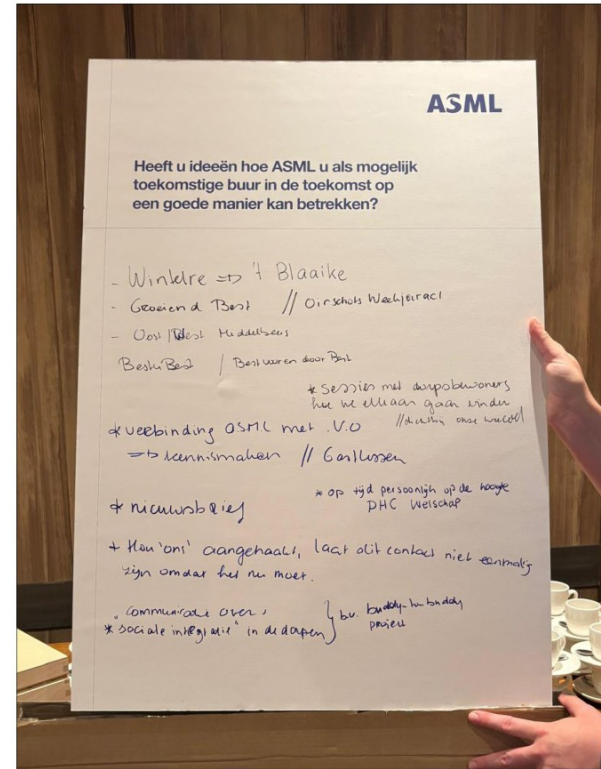 ASML
Heeft u ideeën hoe ASML u als mogelijk
toekomstige buur in de toekomst op
een goede manier kan betrekken?
- Wintelre => 't Blaaike
- Groeiend Best // Oirschots Weekjournaal
- Oost/West Middelbeers
Best / Best door Best
* Sessies met dorpsbewoners
hoe we elkaar gaan vinden
// onze wereld
* verbinding ASML met V.O
=> kennismaken // Gastlessen
* op tijd persoonlijk op de hoogte
DHC Welschap
* nieuwsbrief
+ Hou 'ons' aangehaakt, laat dit contact niet eenmalig
zijn omdat het nu moet.
"communicatie over,
* sociale integratie" in de dorpen } bv. buddy-buddy
project